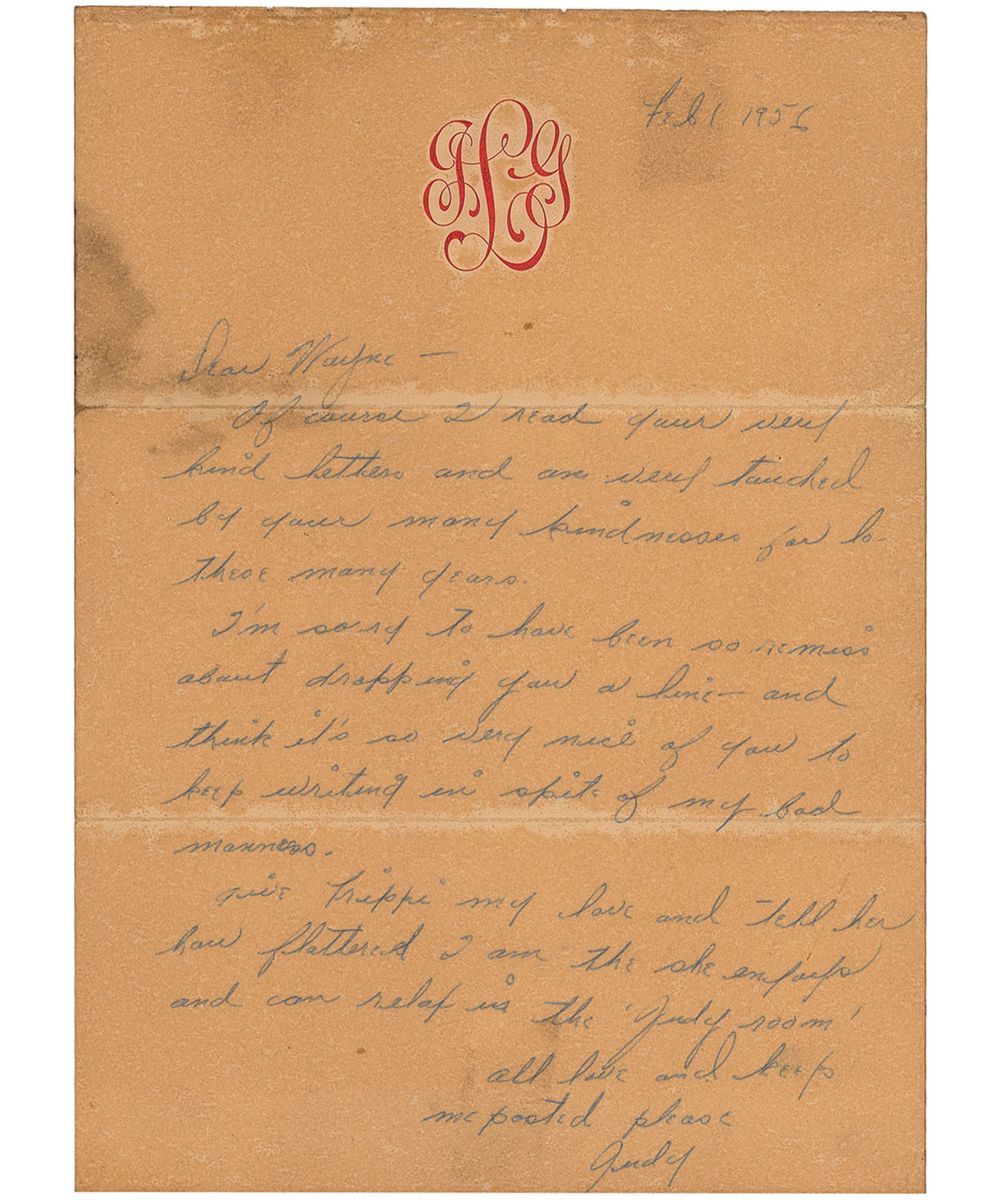 Feb 1 1956
Dear Wayne —
Of course I read your very
kind letters and am very touched
by your many kindnesses for lo-
these many years.
I'm sorry to have been so remiss
about dropping you a line— and
think it's so very nice of you to
keep writing in spite of my bad
manners.
Give Trippi my love and tell her
how flattered I am the she enjoys
and can relax in the 'Judy room'
all love and keep
me posted please
Judy